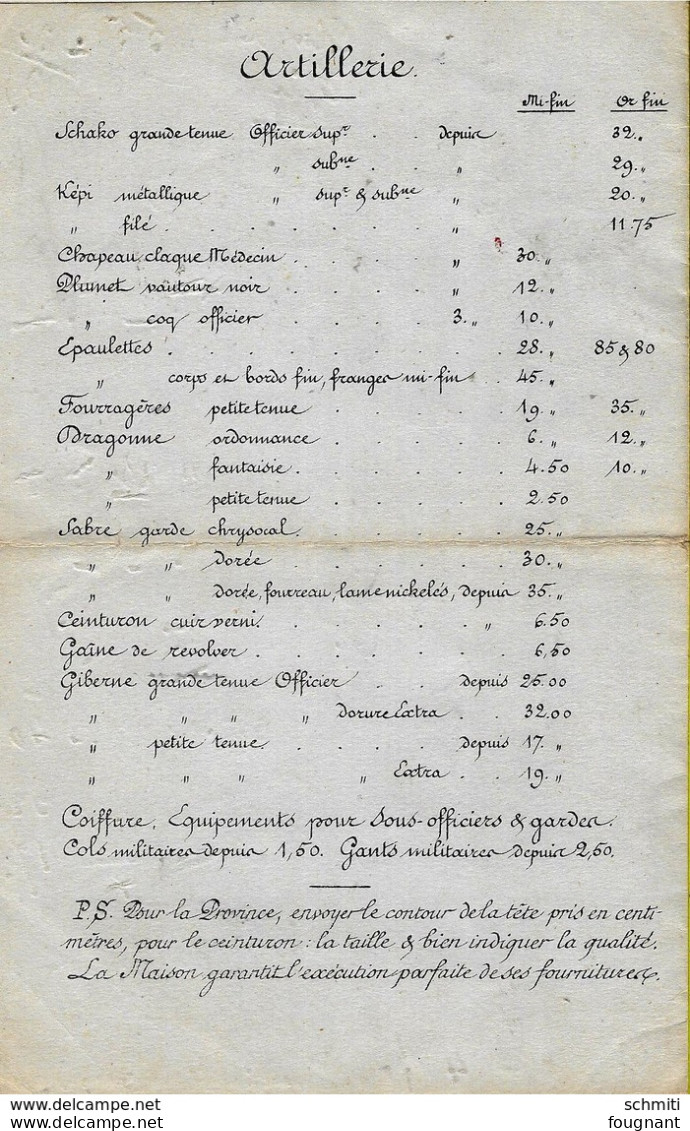 Artillerie.
Mi-fin Or fin
Schako grande tenue Officier supr. . . depuis 32. "
" subne . " 29. "
Képi métallique " supr & subne " 20. "
" filé . . . . . . . " 11.75
Chapeau claque Médecin . . . . " 30. "
Plumet vautour noir . . . . " 12. "
" coq officier . . . . 3. " 10. "
Epaulettes . . . . . . . . . 28. " 85 & 80
" corps et bords fin, franges mi-fin . . 45. "
Fourragères petite tenue . . . . . 19 " 35. "
Dragonne ordonnance . . . . . 6. " 12. "
" fantaisie . . . . . . 4.50 10. "
" petite tenue . . . . . 2.50
Sabre garde chrysocal . . . . . 25. "
" " dorée . . . . . . 30. "
" " dorée, fourreau, lame nickelés, depuis 35. "
Ceinturon cuir verni . . . . . " 6.50
Gaîne de revolver . . . . . . . 6,50
Giberne grande tenue Officier . . depuis 25.00
" " " " dorure Extra . . 32.00
" petite tenue . . . . . depuis 17. "
" " " " Extra . . 19. "
Coiffure. Equipements pour Sous-officiers & gardes.
Cols militaires depuis 1,50. Gants militaires depuis 2,50.
P.S. Pour la Province, envoyer le contour de la tête pris en centi-
mètres, pour le ceinturon : la taille & bien indiquer la qualité.
La Maison garantit l'exécution parfaite de ses fournitures.
schmiti
fougnant